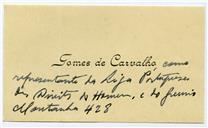 Gomes de Carvalho como
representante da Liga Portuguesa
dos Direitos do Homem, e do Gremio
Montanha 428